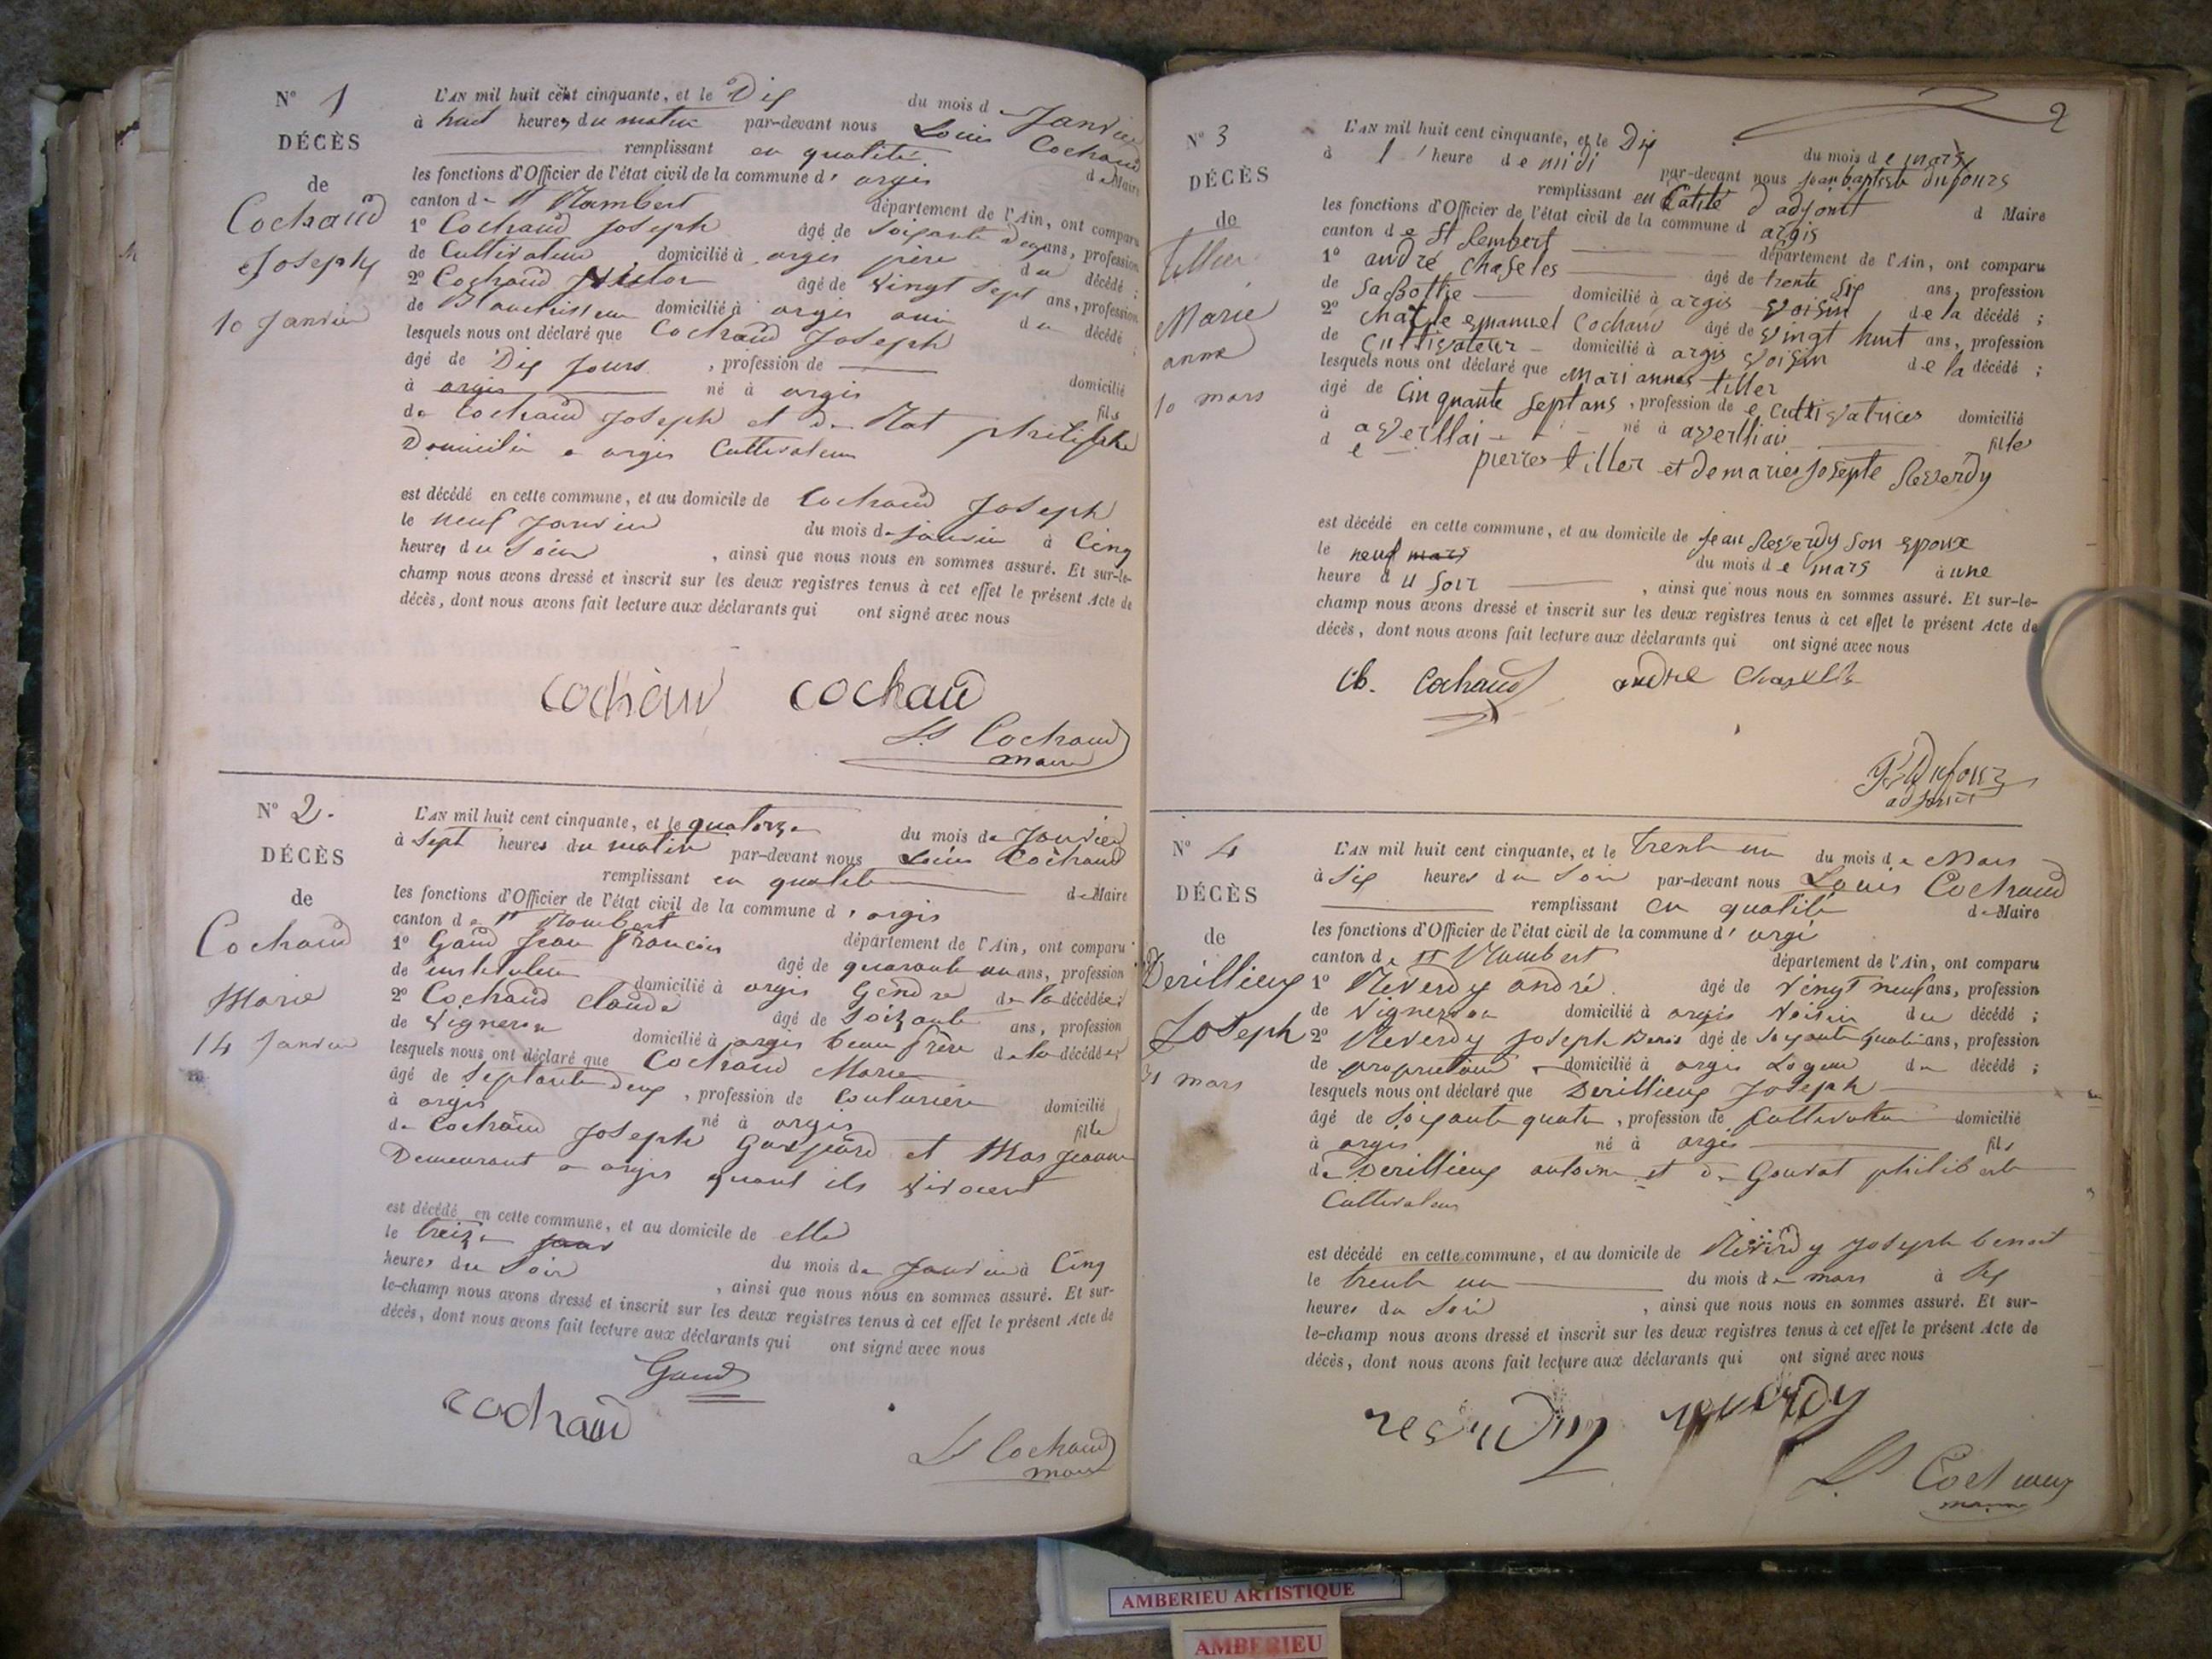 N° 1
DÉCÈS
de
Cochaud
Joseph
10 Janvier
L'AN mil huit cent cinquante, et le Dix du mois de Janvier
à huit heures du matin par-devant nous Louis Cochaud
remplissant en qualité de Maire
les fonctions d'Officier de l'état civil de la commune d'argis
canton de St Rambert département de l'Ain, ont comparu
1° Cochaud Joseph âgé de Soixante deux ans, profession
de Cultivateur domicilié à argis père du décédé ;
2° Cochaud âgé de vingt sept ans, profession
de domicilié à argis ami du décédé ;
lesquels nous ont déclaré que Cochaud Joseph
âgé de Dix Jours , profession de domicilié
à argis né à argis fils
de Cochaud Joseph et de
Domicilié a argis Cultivateur
est décédé en cette commune, et au domicile de Cochaud Joseph
le neuf Janvier du mois de janvier à Cinq
heures du Soir , ainsi que nous nous en sommes assuré. Et sur-le-
champ nous avons dressé et inscrit sur les deux registres tenus à cet effet le présent Acte de
décès, dont nous avons fait lecture aux déclarants qui ont signé avec nous
cochaud cochaud
Ls Cochaud
maire
N° 2.
DÉCÈS
de
Cochaud
Marie
14 Janvier
L'AN mil huit cent cinquante, et le quatorze du mois de Janvier
à Sept heures du matin par-devant nous Louis Cochaud
remplissant en qualité de Maire
les fonctions d'Officier de l'état civil de la commune d'argis
canton de St Rambert département de l'Ain, ont comparu
1° Gaud Jean François âgé de quarante un ans, profession
de instituteur domicilié à argis Gendre de la décédée ;
2° Cochaud Claude âgé de Soixante ans, profession
de Vigneron domicilié à argis beau frère de la décédée ;
lesquels nous ont déclaré que Cochaud Marie
âgé de Septante deux , profession de Couturière domicilié
à argis né à argis fille
de Cochaud Joseph Gaspard et Mas Jeanne
Demeurant a argis quant ils vivoient
est décédé en cette commune, et au domicile de elle
le treize du mois de Janvier à Cinq
heures du Soir , ainsi que nous nous en sommes assuré. Et sur-
le-champ nous avons dressé et inscrit sur les deux registres tenus à cet effet le présent Acte de
décès, dont nous avons fait lecture aux déclarants qui ont signé avec nous
Gaud
cochaud
Ls Cochaud
maire
2
N° 3
DÉCÈS
de
tiller
Marie
anne
10 mars
L'AN mil huit cent cinquante, et le Dix du mois de mars
à 1 heure de midi par-devant nous jean baptiste dufours
remplissant en d adjoint d Maire
les fonctions d'Officier de l'état civil de la commune d argis
canton de St Rembert département de l'Ain, ont comparu
1° andré chaseles âgé de trente Six ans, profession
de Sabottie domicilié à argis voisin de la décédé ;
2° charle emanuel Cochaud âgé de vingt huit ans, profession
de Cultivateur domicilié à argis voisin de la décédé ;
lesquels nous ont déclaré que mari annes tiller
âgé de Cinquante Septans , profession de e cuttivatrices domicilié
à averllai né à averlliai fille
de pierres tiller et de maries josepte Reverdy
est décédé en cette commune, et au domicile de jean Reverdy Son epoux
le neuf mars du mois de mars à une
heure du Soir , ainsi que nous nous en sommes assuré. Et sur-le-
champ nous avons dressé et inscrit sur les deux registres tenus à cet effet le présent Acte de
décès, dont nous avons fait lecture aux déclarants qui ont signé avec nous
Cochaud andre
Dufours
adjoint
N° 4
DÉCÈS
de
Derillieux
Joseph
31 mars
L'AN mil huit cent cinquante, et le trente un du mois de Mars
à Six heures du Soir par-devant nous Louis Cochaud
remplissant en qualité de Maire
les fonctions d'Officier de l'état civil de la commune d'argi
canton de St Rambert département de l'Ain, ont comparu
1° Reverdy andré âgé de vingt neuf ans, profession
de Vigneron domicilié à argis Voisin du décédé ;
2° Reverdy Joseph âgé de Soixante quatre ans, profession
de proprietaire domicilié à argis Logeur du décédé ;
lesquels nous ont déclaré que Derillieux Joseph
âgé de Soixante quatre , profession de Cultivateur domicilié
à argis né à argis fils
de Derillieux antoine et de Gouvat philiberte
Cultivateur
est décédé en cette commune, et au domicile de Reverdy Joseph benoit
le trente un du mois de mars à Six
heures du Soir , ainsi que nous nous en sommes assuré. Et sur-
le-champ nous avons dressé et inscrit sur les deux registres tenus à cet effet le présent Acte de
décès, dont nous avons fait lecture aux déclarants qui ont signé avec nous
reverdy reverdy
Ls Cochaud
maire
AMBERIEU ARTISTIQUE
AMBERIEU